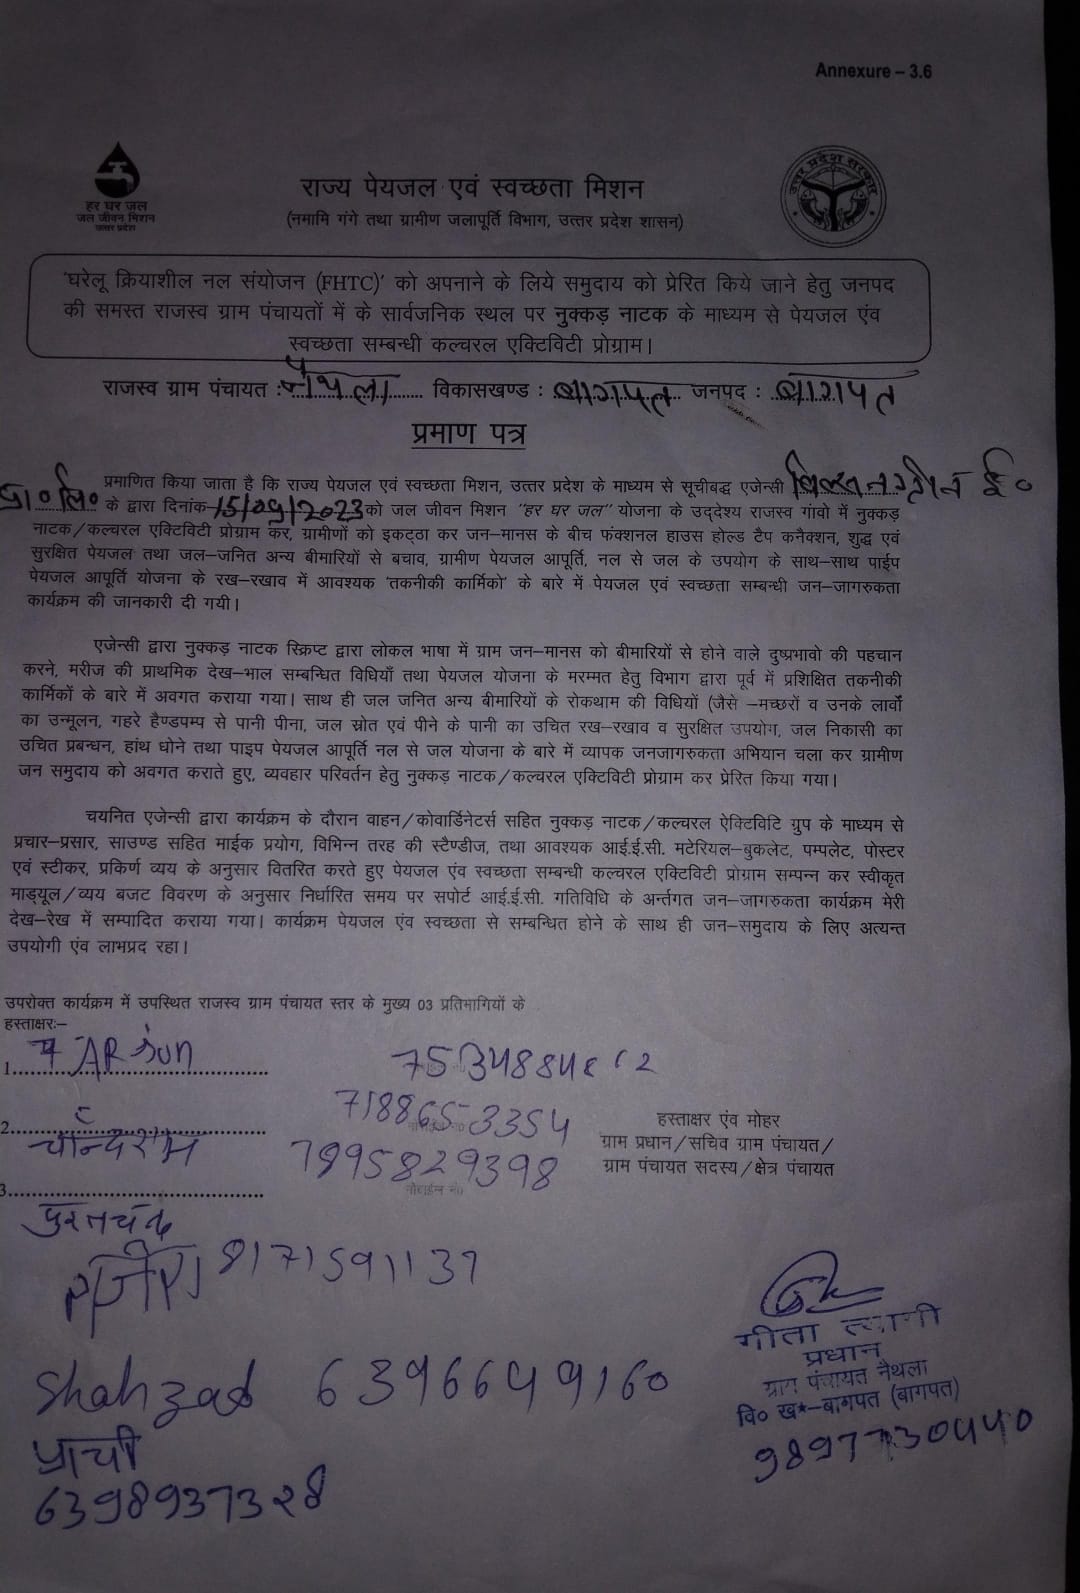 Annexure – 3.6
हर घर जल
जल जीवन मिशन
उत्तर प्रदेश
उत्तर प्रदेश सरकार
राज्य पेयजल एवं स्वच्छता मिशन
(नमामि गंगे तथा ग्रामीण जलापूर्ति विभाग, उत्तर प्रदेश शासन)
'घरेलू क्रियाशील नल संयोजन (FHTC)' को अपनाने के लिये समुदाय को प्रेरित किये जाने हेतु जनपद
की समस्त राजस्व ग्राम पंचायतों में के सार्वजनिक स्थल पर नुक्कड़ नाटक के माध्यम से पेयजल एंव
स्वच्छता सम्बन्धी कल्चरल एक्टिविटी प्रोग्राम।
राजस्व ग्राम पंचायत : नैथला विकासखण्ड : बागपत जनपद : बागपत
प्रमाण पत्र
प्रमाणित किया जाता है कि राज्य पेयजल एवं स्वच्छता मिशन, उत्तर प्रदेश के माध्यम से सूचीबद्ध एजेन्सी ग्रीन ई०
प्रा० लि० के द्वारा दिनांक 15/09/2023 को जल जीवन मिशन "हर घर जल" योजना के उद्देश्य राजस्व गांवो में नुक्कड़
नाटक/कल्चरल एक्टिविटी प्रोग्राम कर, ग्रामीणों को इकट्ठा कर जन–मानस के बीच फंक्शनल हाउस होल्ड टैप कनैक्शन, शुद्ध एवं
सुरक्षित पेयजल तथा जल–जनित अन्य बीमारियों से बचाव, ग्रामीण पेयजल आपूर्ति, नल से जल के उपयोग के साथ–साथ पाईप
पेयजल आपूर्ति योजना के रख–रखाव में आवश्यक 'तकनीकी कार्मिको' के बारे में पेयजल एवं स्वच्छता सम्बन्धी जन–जागरुकता
कार्यक्रम की जानकारी दी गयी।
एजेन्सी द्वारा नुक्कड़ नाटक स्क्रिप्ट द्वारा लोकल भाषा में ग्राम जन–मानस को बीमारियों से होने वाले दुष्प्रभावो की पहचान
करने, मरीज की प्राथमिक देख–भाल सम्बन्धित विधियाँ तथा पेयजल योजना के मरम्मत हेतु विभाग द्वारा पूर्व में प्रशिक्षित तकनीकी
कार्मिकों के बारे में अवगत कराया गया। साथ ही जल जनित अन्य बीमारियों के रोकथाम की विधियों (जैसे –मच्छरों व उनके लार्वो
का उन्मूलन, गहरे हैण्डपम्प से पानी पीना, जल स्रोत एवं पीने के पानी का उचित रख–रखाव व सुरक्षित उपयोग, जल निकासी का
उचित प्रबन्धन, हांथ धोने तथा पाइप पेयजल आपूर्ति नल से जल योजना के बारे में व्यापक जनजागरुकता अभियान चला कर ग्रामीण
जन समुदाय को अवगत कराते हुए, व्यवहार परिवर्तन हेतु नुक्कड़ नाटक/कल्चरल एक्टिविटी प्रोग्राम कर प्रेरित किया गया।
चयनित एजेन्सी द्वारा कार्यक्रम के दौरान वाहन/कोवार्डिनेटर्स सहित नुक्कड़ नाटक/कल्चरल ऐक्टिविटि ग्रुप के माध्यम से
प्रचार–प्रसार, साउण्ड सहित माईक प्रयोग, विभिन्न तरह की स्टैण्डीज, तथा आवश्यक आई.ई.सी. मटेरियल–बुकलेट, पम्पलेट, पोस्टर
एवं स्टीकर, प्रकिर्ण व्यय के अनुसार वितरित करते हुए पेयजल एंव स्वच्छता सम्बन्धी कल्चरल एक्टिविटी प्रोग्राम सम्पन्न कर स्वीकृत
माड्यूल/व्यय बजट विवरण के अनुसार निर्धारित समय पर सपोर्ट आई.ई.सी. गतिविधि के अर्न्तगत जन–जागरुकता कार्यक्रम मेरी
देख–रेख में सम्पादित कराया गया। कार्यक्रम पेयजल एंव स्वच्छता से सम्बन्धित होने के साथ ही जन–समुदाय के लिए अत्यन्त
उपयोगी एंव लाभप्रद रहा।
उपरोक्त कार्यक्रम में उपस्थित राजस्व ग्राम पंचायत स्तर के मुख्य 03 प्रतिभागियों के
हस्ताक्षरः–
1. ARJun
718865 3354
2.
7895829398
हस्ताक्षर एंव मोहर
ग्राम प्रधान/सचिव ग्राम पंचायत/
ग्राम पंचायत सदस्य/क्षेत्र पंचायत
3.
8171591137
Shahzad 6396649160
प्राची
6398937328
गीता त्यागी
प्रधान
ग्राम पंचायत नैथला
वि० ख०–बागपत (बागपत)
9897730440